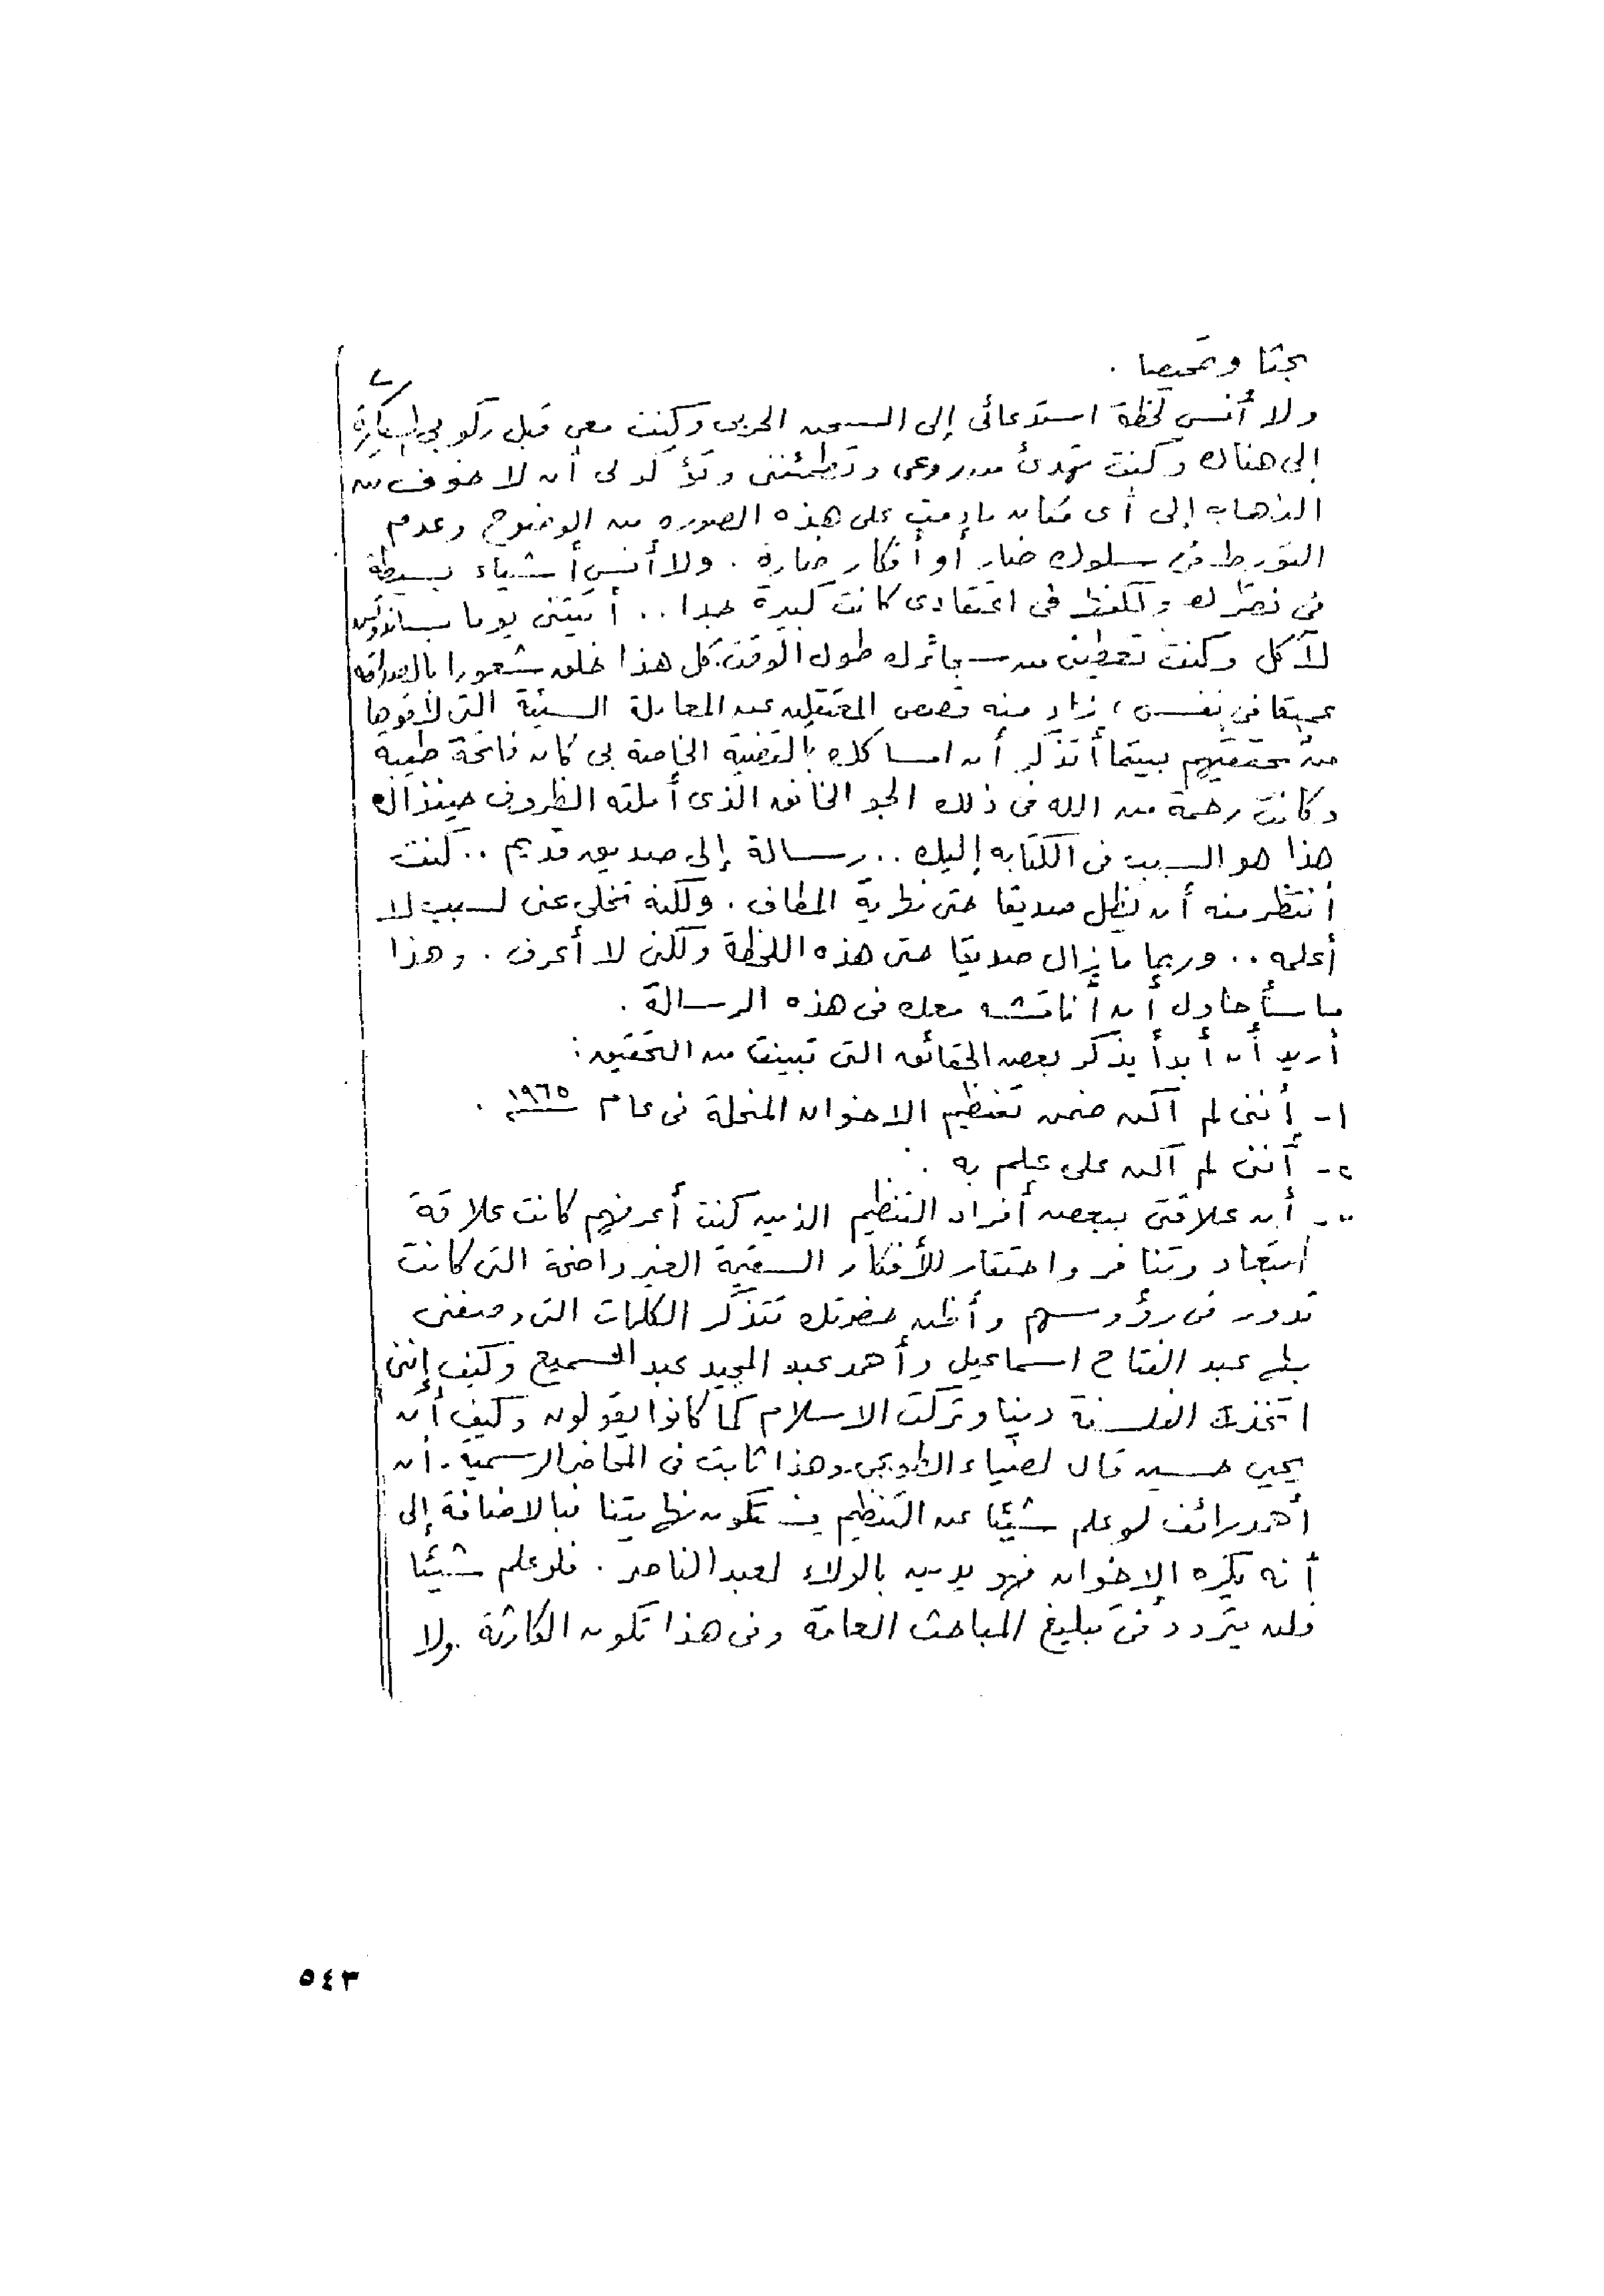 بحثا وتمحيصا .
ولا أنسى لحظة استدعائى إلى السجن الحربى وكنت معى قبل ركوبى السيارة
إلى هناك وكنت تهدئ من روعى وتطمئننى وتؤكد لى أن لا خوف من
الذهاب إلى أى مكان مادمت على هذه الصوره من الوضوح وعدم
التورط فى سلوك ضار أو أفكار ضارة . ولا أنسى أشياء بسيطة
فى نظرك ولكنها فى اعتقادى كانت كبيرة جدا .. أتيتنى يوما بساندوتش
لآكل وكنت تعطينى من سجائرك طول الوقت. كل هذا خلق شعورا بالصداقه
عميقا فى نفسى ، زاد منه قصص المعتقلين عن المعاملة السيئة التى لاقوها
من محققيهم بينما أتذكر أن امساكك بالقضية الخاصة بى كان فاتحة طيبة
وكانت رحمة من الله فى ذلك الجو الخانق الذى أملته الظروف حينذاك
هذا هو السبب فى الكتابه إليك .. رسالة إلى صديق قديم .. كنت
أنتظر منه أن يظل صديقا حتى نهاية المطاف . ولكنه تخلى عنى لسبب لا
أعلمه .. وربما مايزال صديقا حتى هذه اللحظة ولكنى لا أعرف . وهذا
ما سأحاول أن أناقشه معك فى هذه الرسالة .
أريد أن أبدأ بذكر بعض الحقائق التى تبينت من التحقيق :
١ - أننى لم أكن ضمن تنظيم الاخوان المنحلة فى عام ١٩٦٥ .
٢ - أننى لم أكن على علم به .
٣ - أن علاقتى ببعض أفراد التنظيم الذين كنت أعرفهم كانت علاقة
ابتعاد وتنافر واحتقار للأفكار السقيمة الغير واضحة التى كانت
تدور فى رؤوسهم وأظن حضرتك تتذكر الكلمات التى وصفنى
بها عبد الفتاح اسماعيل وأحمد عبد المجيد عبد السميع وكيف إننى
اتخذت الفلسفة دينا وتركت الاسلام كما كانوا يقولون وكيف أن
يحيى حسين قال لضياء الطوبجى. وهذا ثابت فى المحاضر الرسمية. أن
أحمد رائف لو علم شيئا عن التنظيم تكون نهايتنا فبالاضافة إلى
أنه يكره الإخوان فهو يدين بالولاء لعبد الناصر . فلو علم شيئا
فلن يتردد فى تبليغ المباحث العامة وفى هذا تكون الكارثة . ولا
٥٤٣